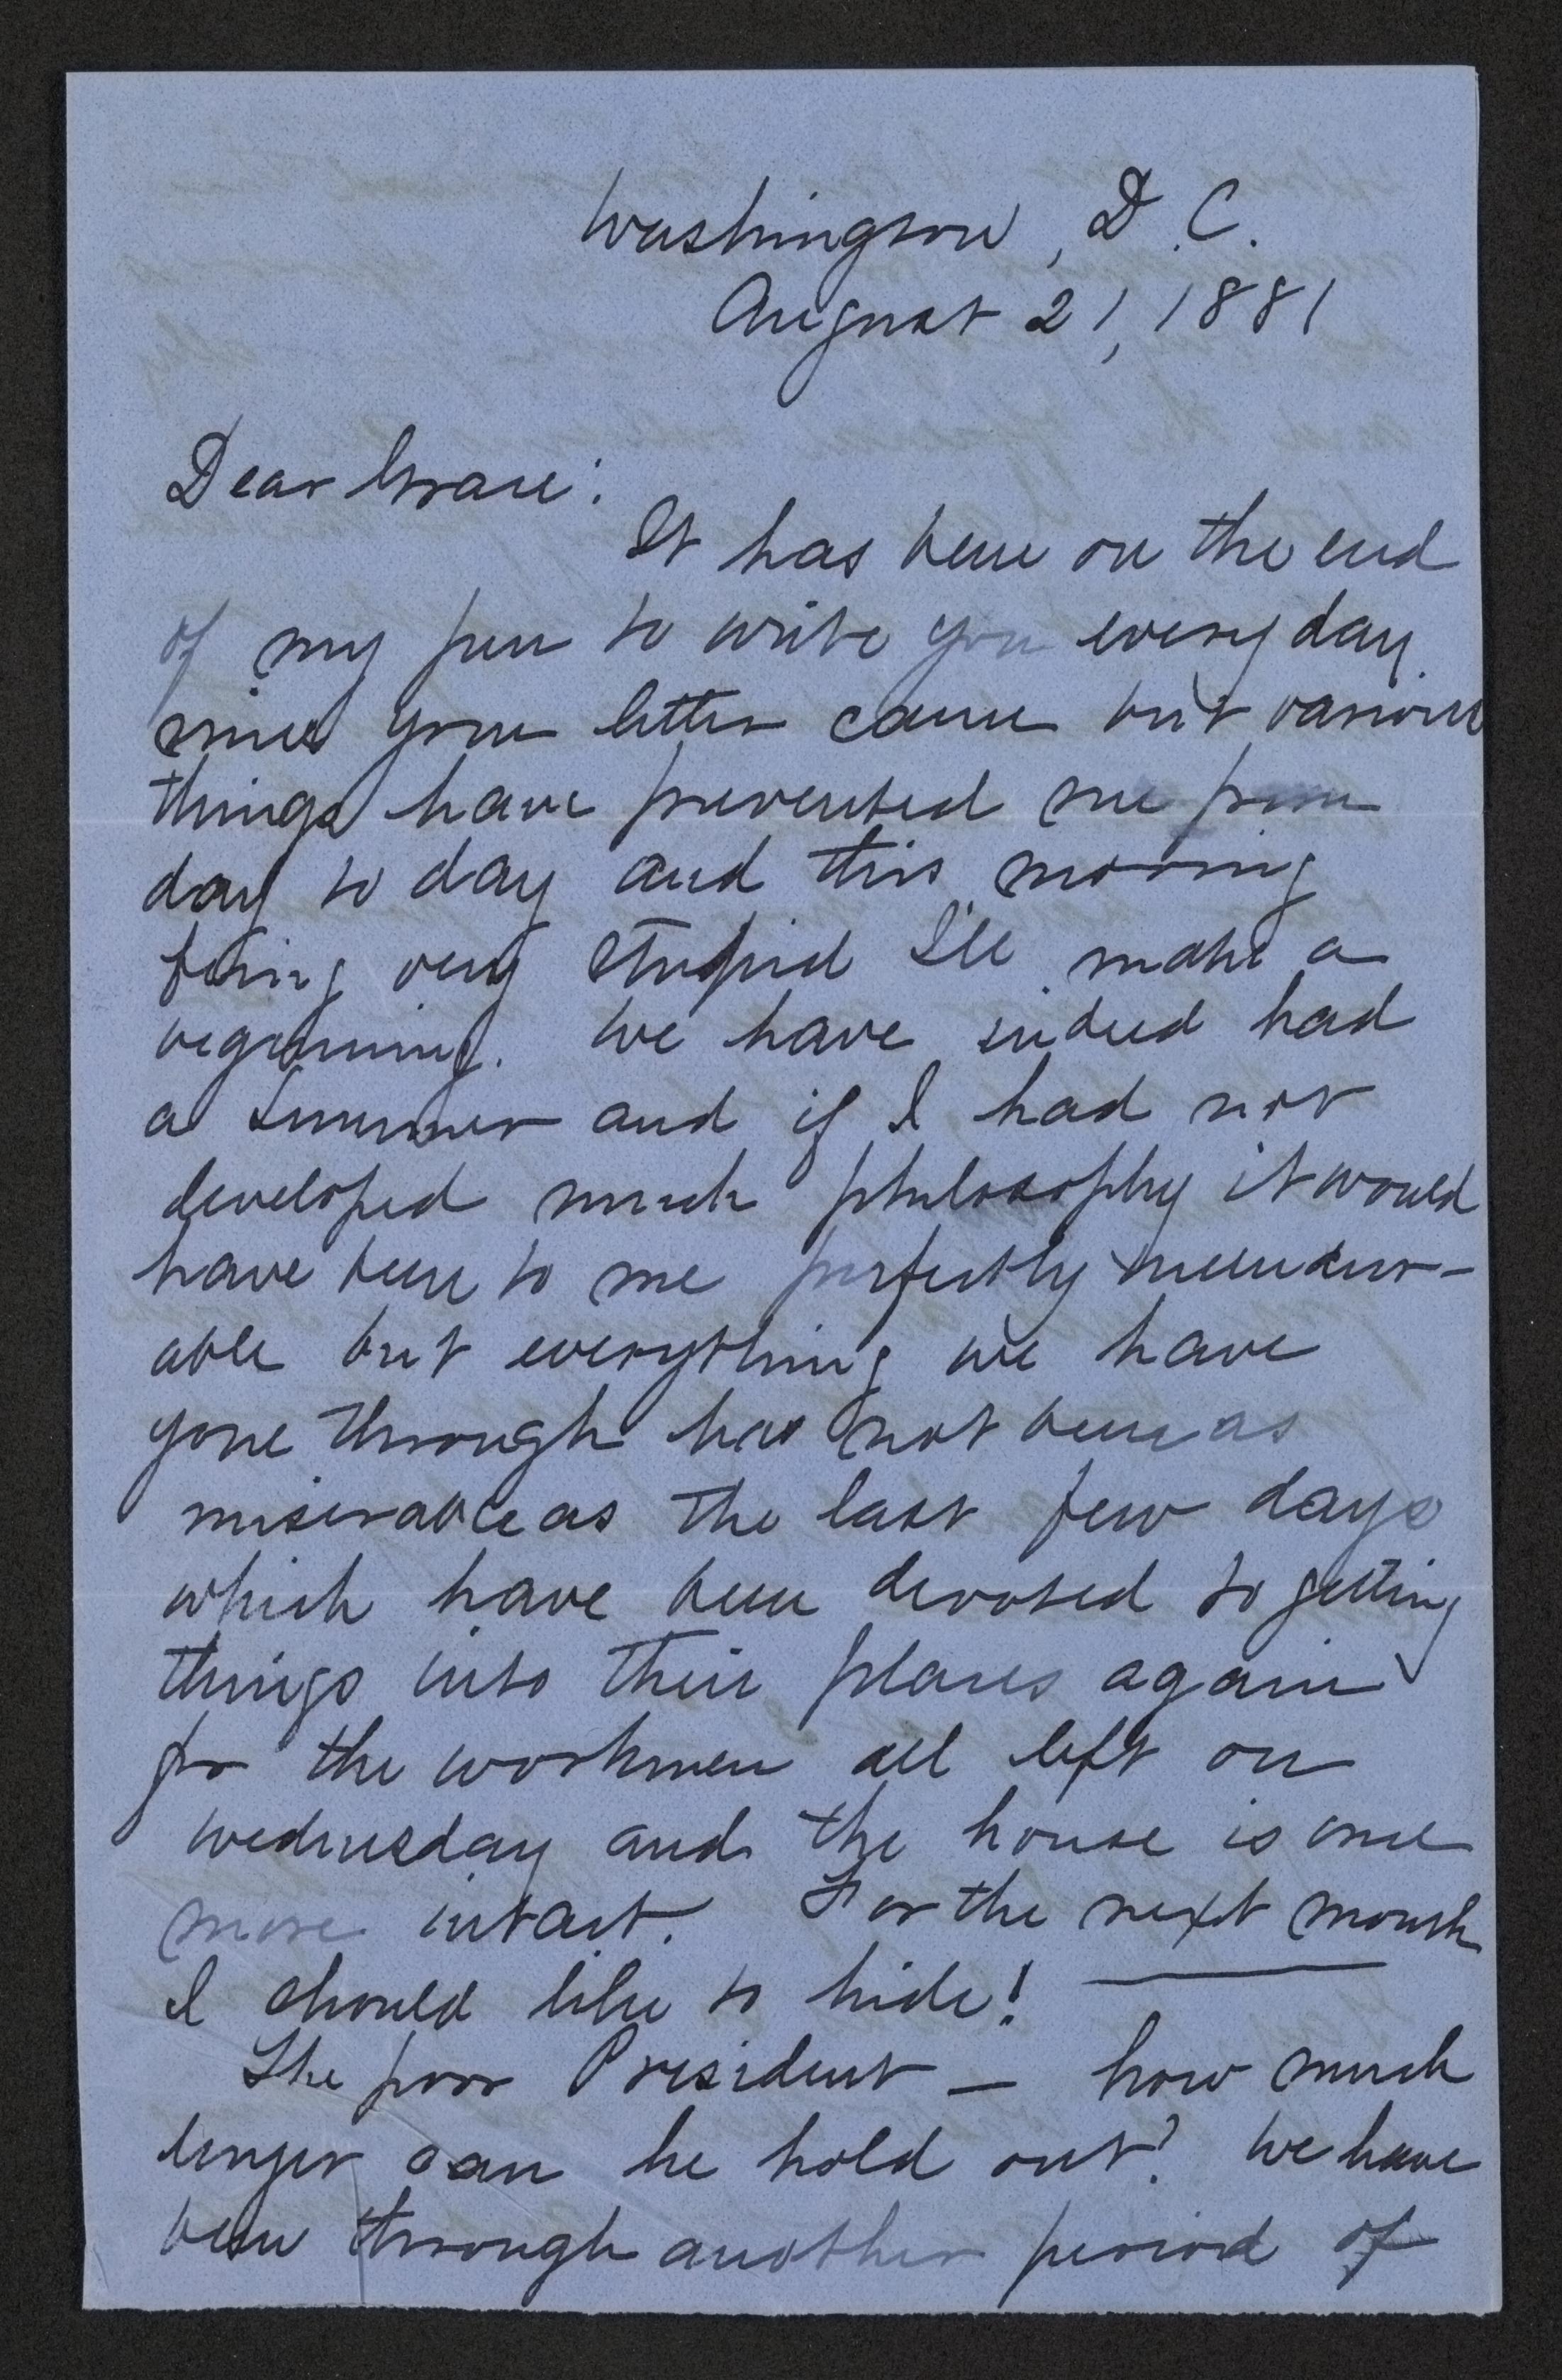 Washington, D.C.
August 21, 1881
Dear Grace:
It has been on the end
of my pen to write you every day
since your letter came but various
things have prevented me from
day to day and this morning
being very stupid I'll make a
beginning. We have indeed had
a summer and if I had not
developed much philosophy it would
have been to me perfectly unendur-
able but everything we have
gone through has not been as
miserable as the last few days
which have been devoted to getting
things into their places again
for the workmen all left on
Wednesday and the house is once
more intact. For the next month
I should like to hide!
The poor President — how much
longer can he hold out? We have
been through another period of